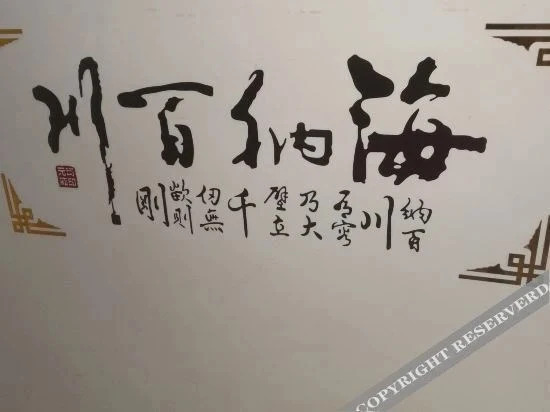 海纳百川
納百
川
有容
乃大
壁立
千
仞無
欲則
剛
COPYRIGHT RESERVERD